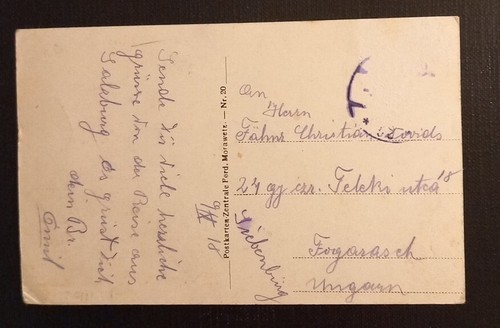 Sende dir viele herzliche
grüsse von der Reise aus
Salzburg es grüst dich
dein Br.
Emil
9/IX 18
Postkarten-Zentrale Ferd. Morawetz. — Nr. 20
An
Herrn
Fähnr Christian
24 gj ezr. Teleki utca 18
Fogarasch
Ungarn
Siebenbürg